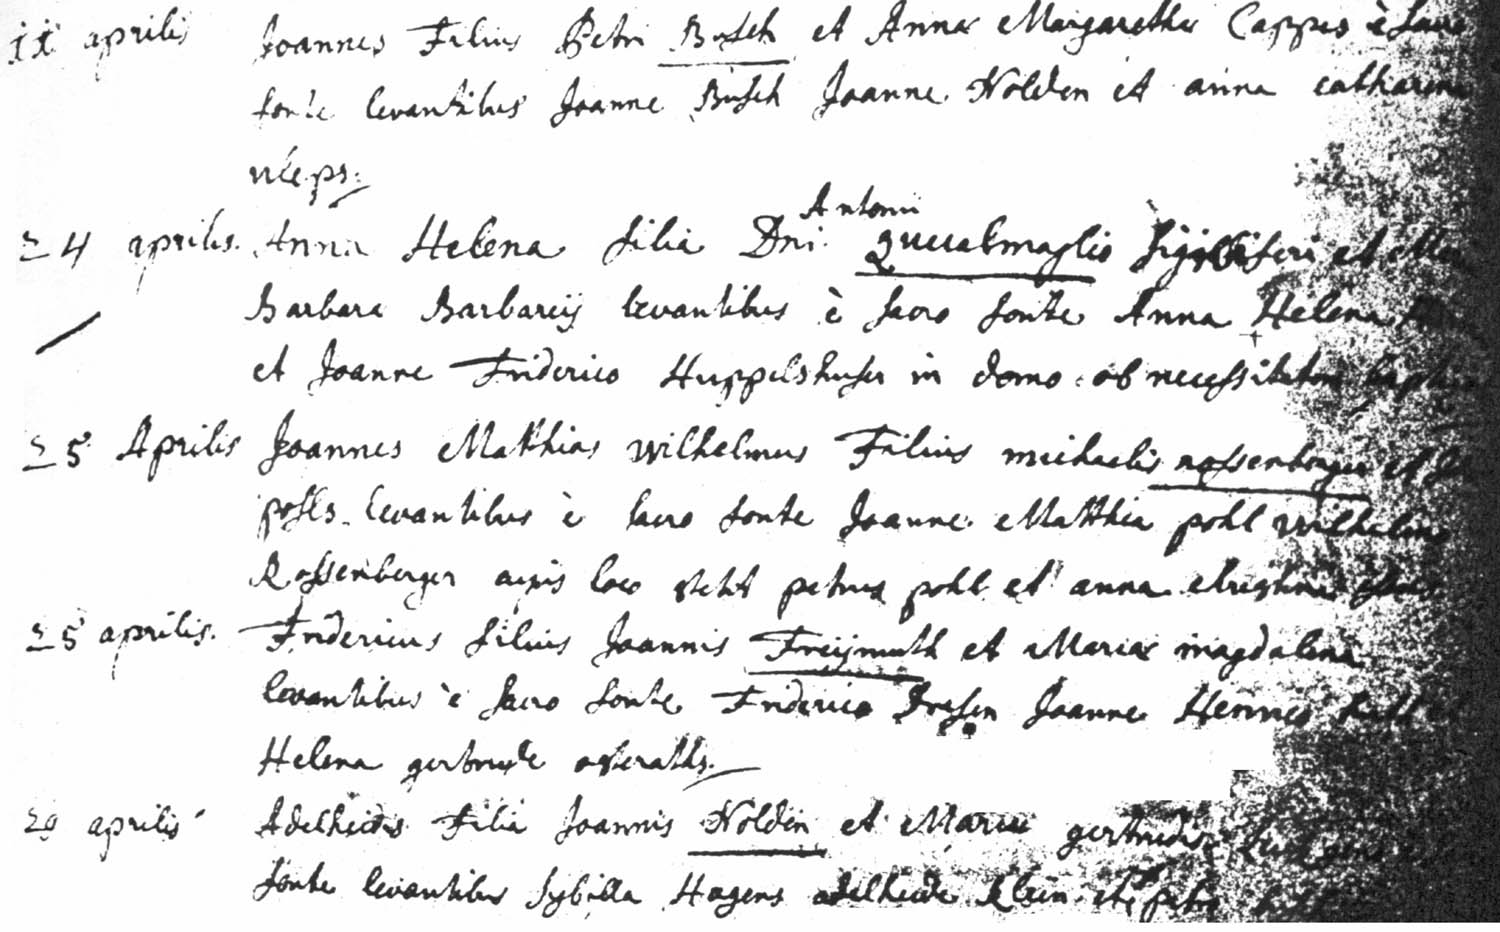 11 aprilis Joannes Filius Petri Busch et Annæ Margarethæ Cappes è Sacro
fonte levantibus Joanne Busch Joanne Nolden et anna catharina
Antonii
24 aprilis. Anna Helena filia Dni. Quecabmaglio sigilliferi et
Barbara levantibus è sacro fonte Anna Helena
et Joanne Friderico Huppelshuser in domo ob necessitatem
25 Aprilis Joannes Matthias wilhelmus Filius michaelis rossenberger et
pohls levantibus è sacro fonte Joanne Matthia pohl wilhelmo
Rossenberger cujus loco stetit petrus pohl et anna
25 aprilis. Fridericus filius Joannis Freijmuth et Mariæ magdalena
levantibus è sacro fonte Friderico Dresen Joanne
Helena gertrude osteraths.
29 aprilis Adelheidis Filia Joannis Nolden et Mariæ gertrudis
fonte levantibus Sybilla Hagens adelheide Klein et petro